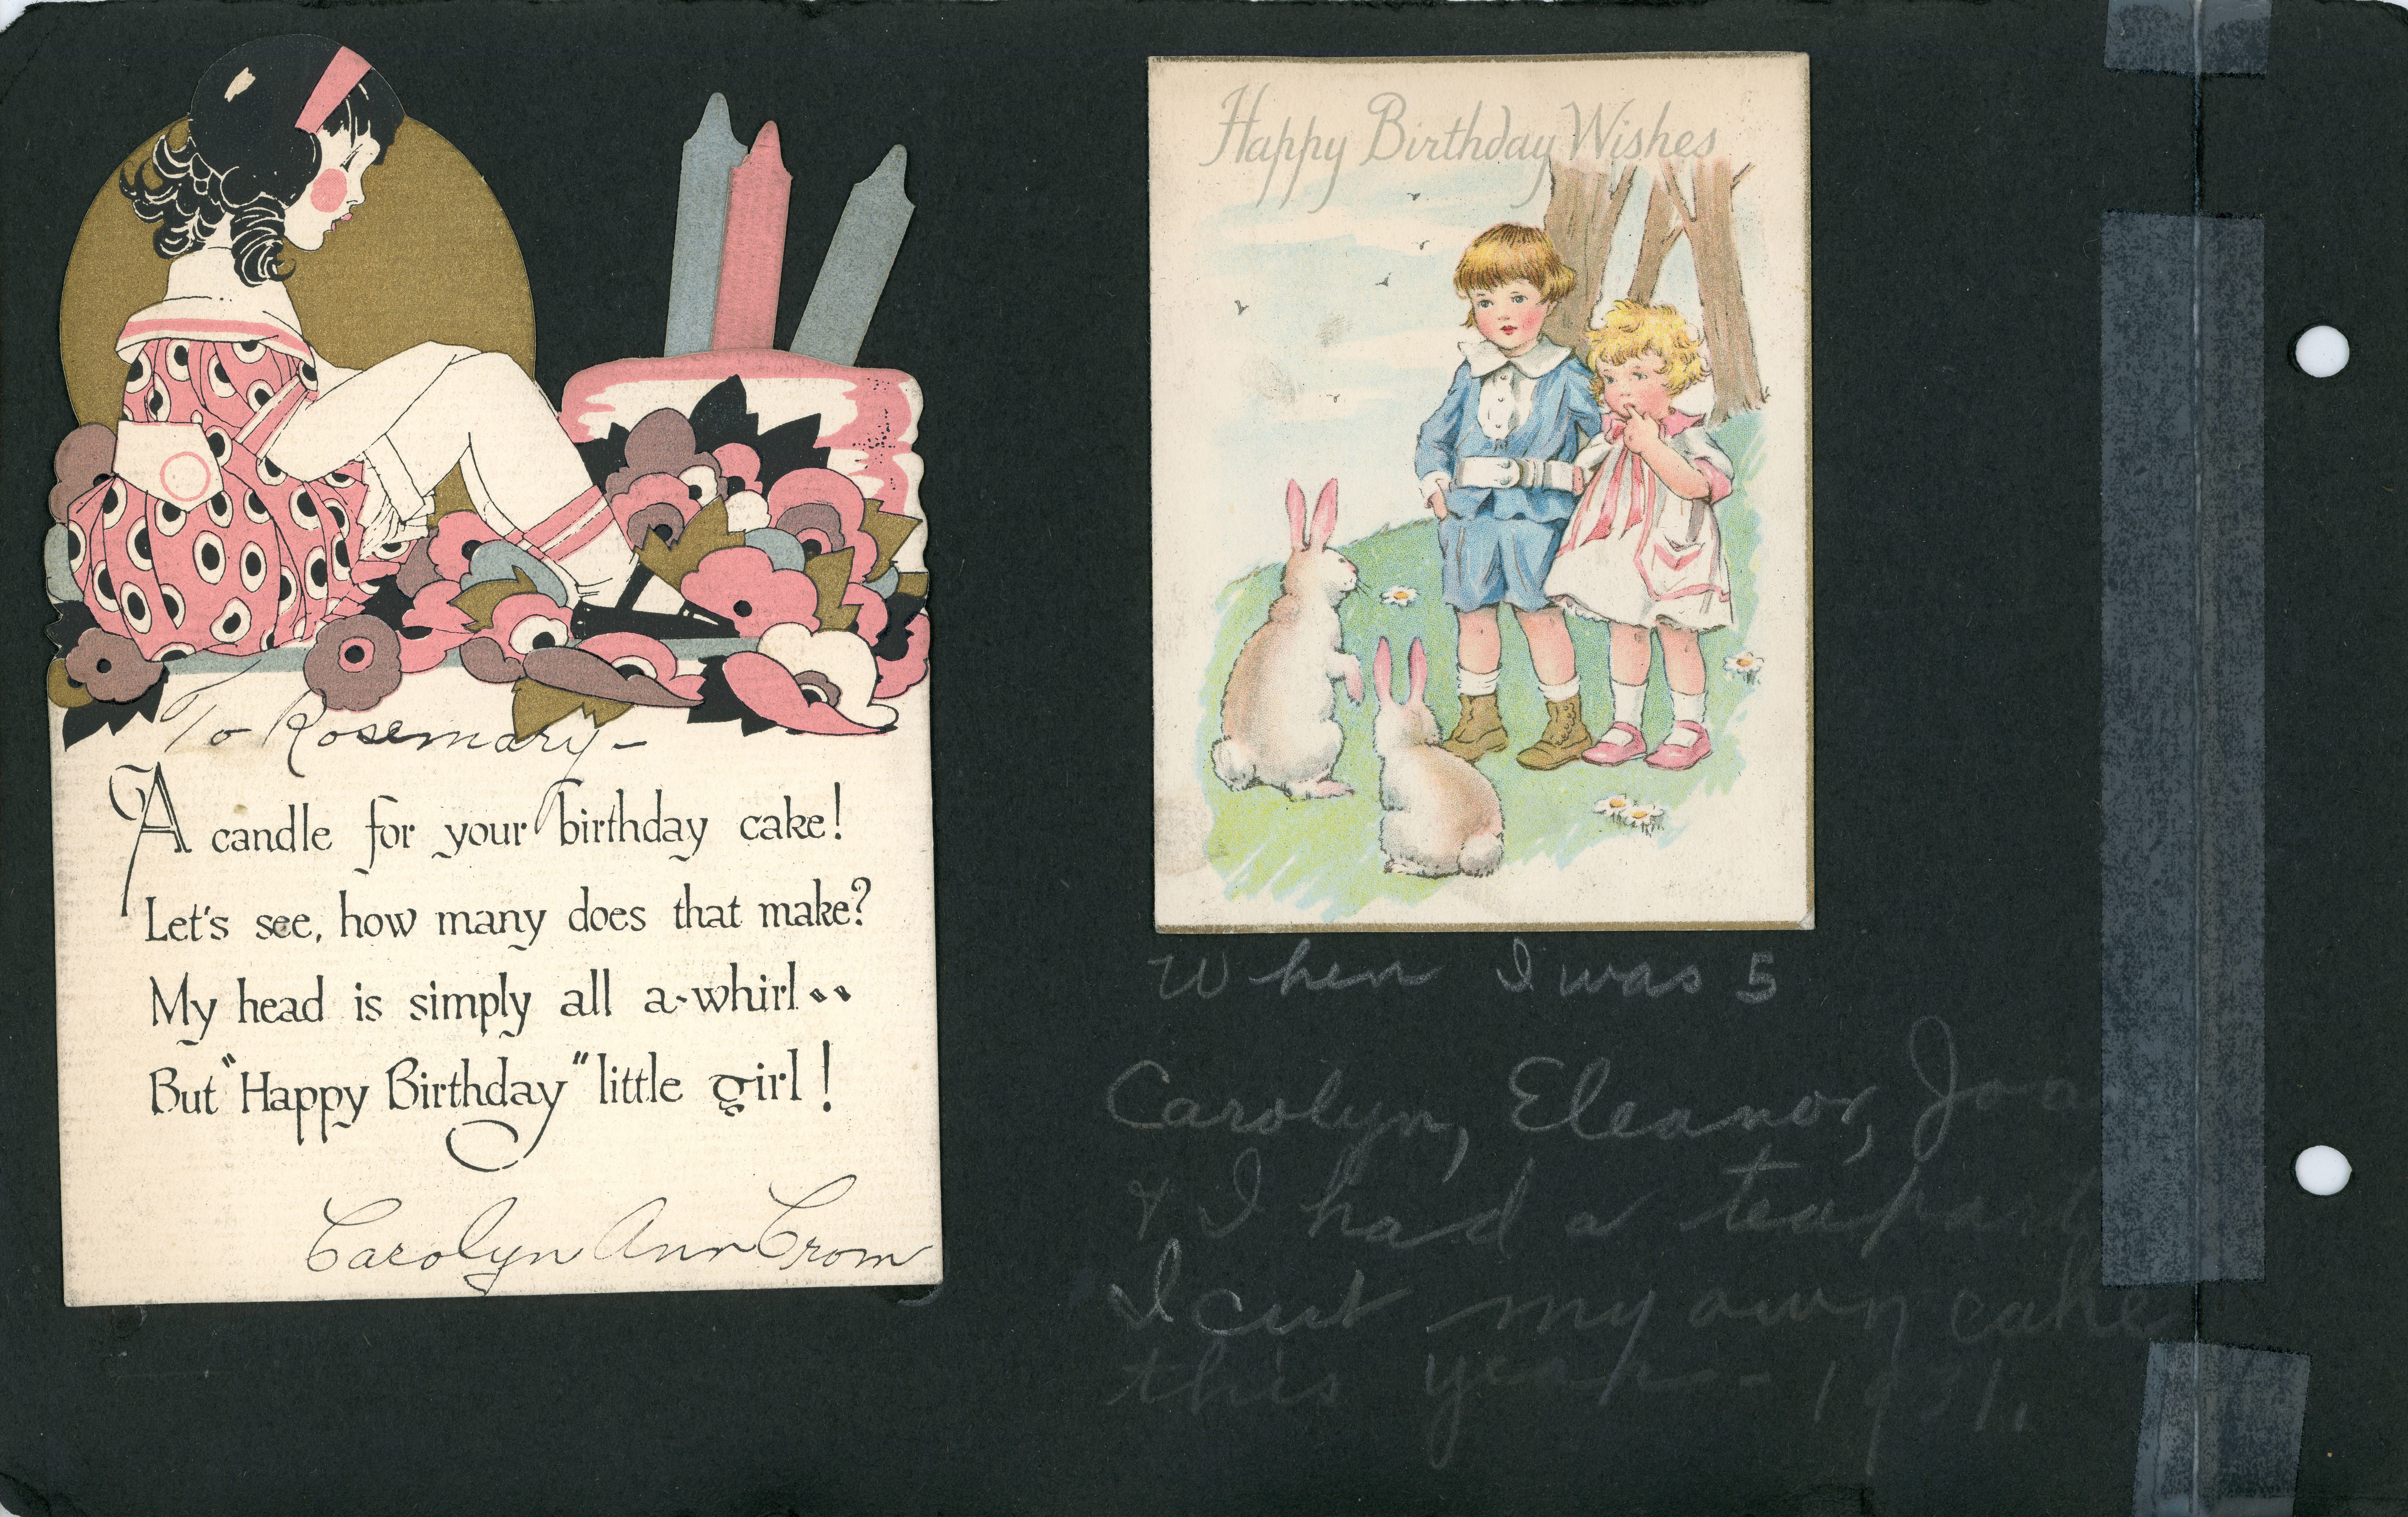 To Rosemary-
A candle for your birthday cake!
Let's see, how many does that make?
My head is simply all a-whirl..
But "Happy Birthday" little girl!
Carolyn Ann Crom
Happy Birthday Wishes
When I was 5
Carolyn, Eleanor,
& I had a
I cut my own cake
this year - 1931.